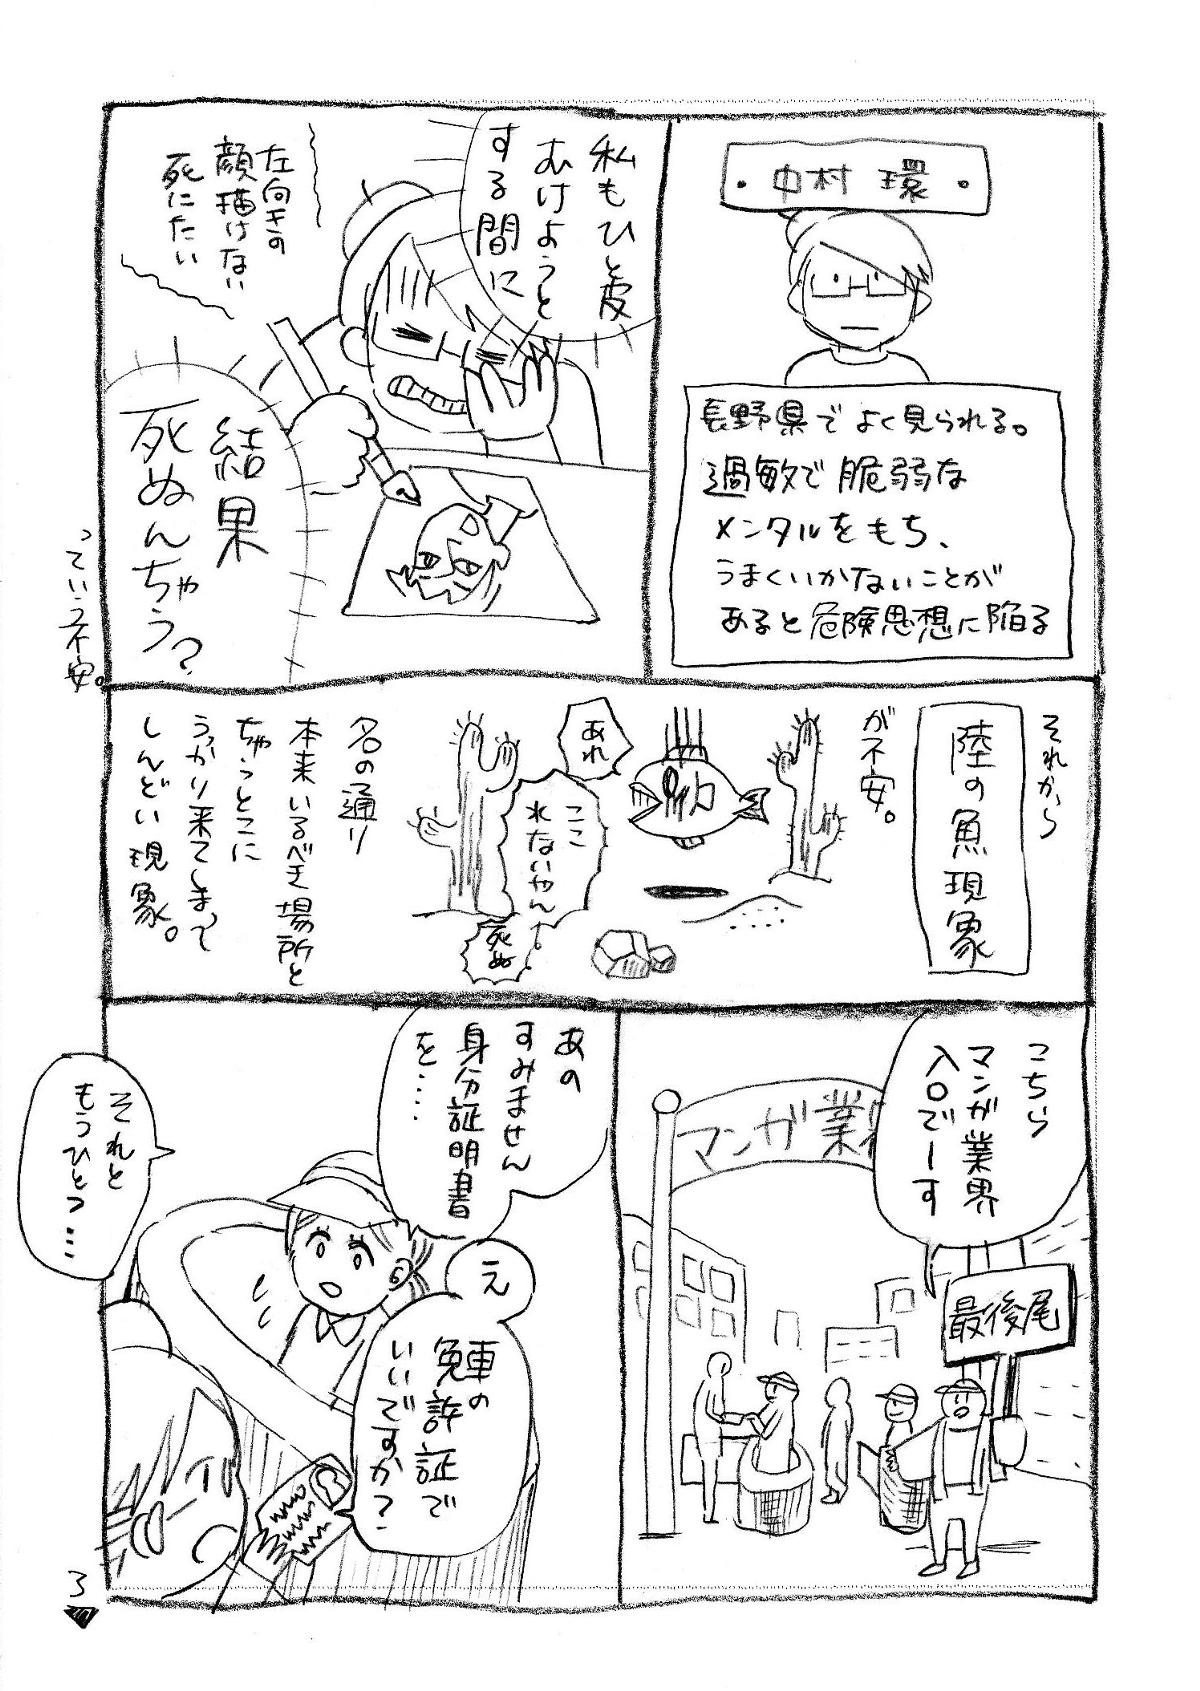 ・中村 環・
長野県でよく見られる。
過敏で脆弱な
メンタルをもち、
うまくいかないことが
あると危険思想に陥る
私もひと皮
むけようと
する間に
左向きの
顔描けない
死にたい
結果
死ぬんちゃう?
っていう不安。
それから
陸の魚現象
が不安。
あれ
ここ
れないやん!
死ぬ
名の通り
本来いるべき場所と
ちゃうとこに
うっかり来てしまって
しんどい現象。
こちら
マンガ業界
入口でーす
マンガ業界
最後尾
あの
すみません
身分証明書
を‥‥
え
車の
免許証で
いいですか?
それと
もうひとつ…
3